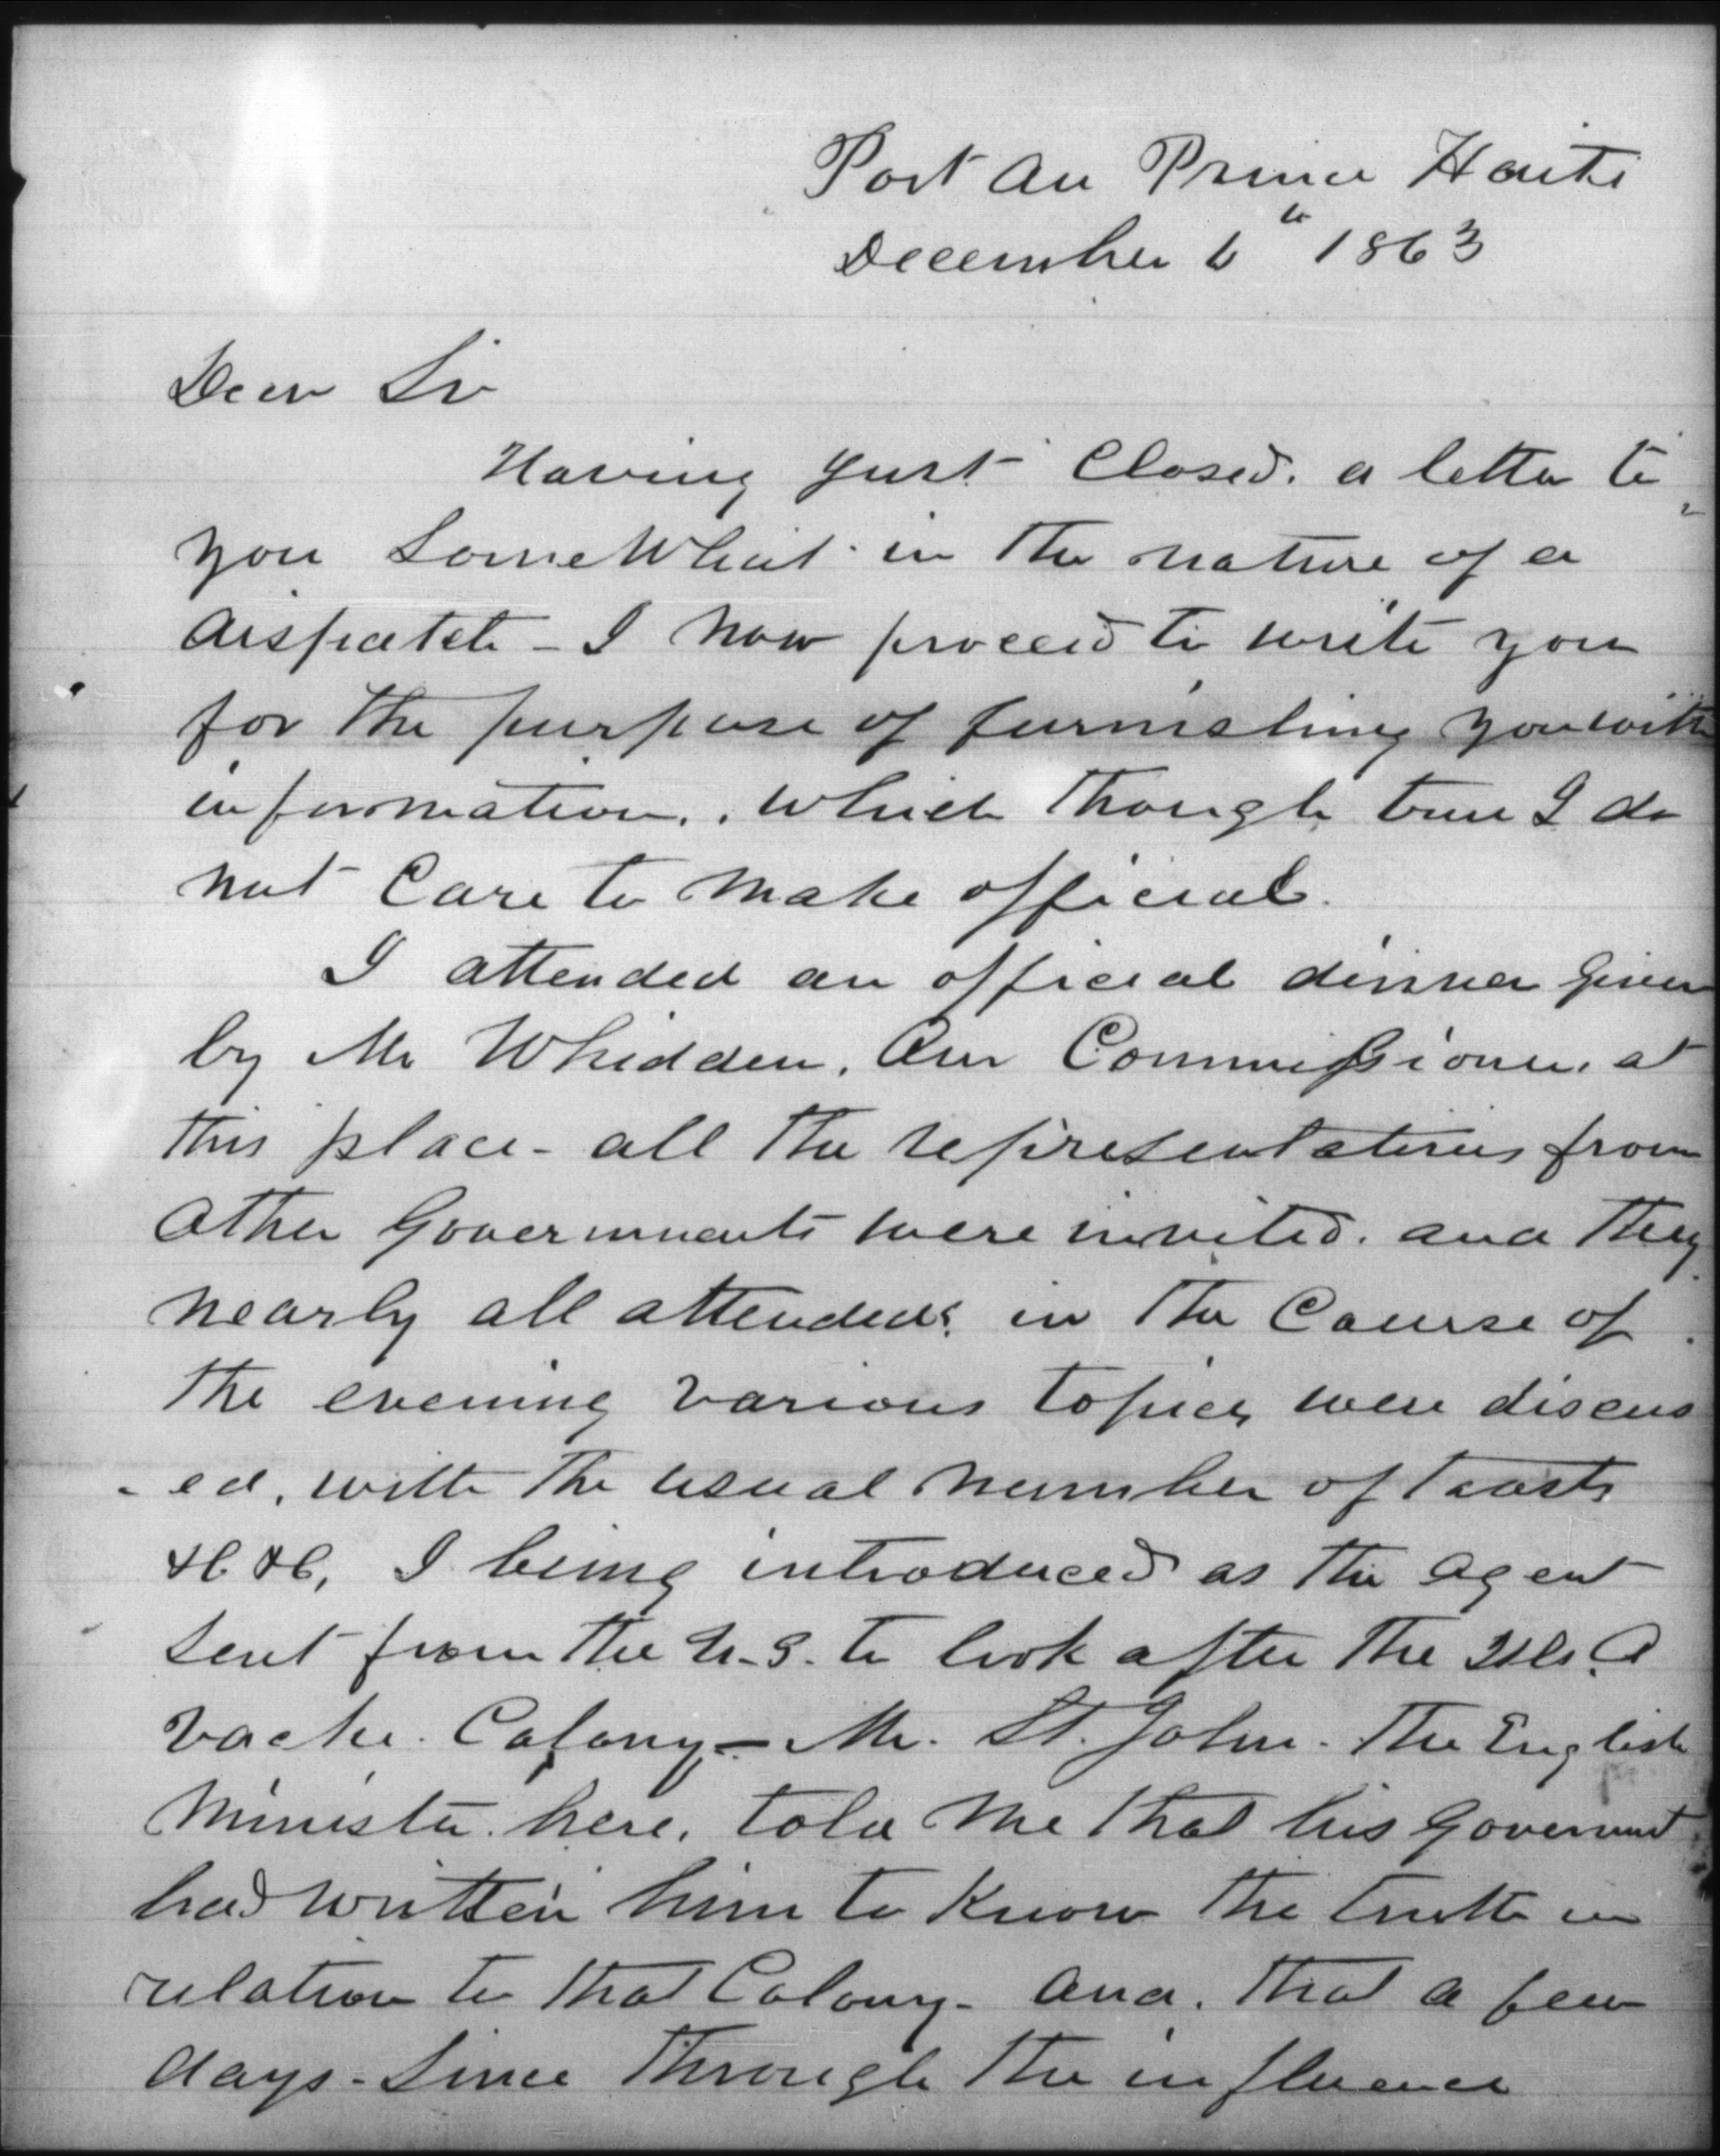 Port Au Prince Haiti
December 6th 1863
Dear Sir
Having just Closed. a letter to
you SomeWhat in the nature of a
dispatch - I now proceed to write you
for the purpose of furnishing you with
information, which though true I do
not Care to make official.
I attended an official dinner given
by Mr Whidden, Our Commissioner, at
this place - all the representatives from
Other Governments were invited. and they
nearly all attended. in the Course of
the evening various topics were discuss
-ed, with the usual number of toasts
&c &c, I being introduced as the agent
sent from the U.S. to look after the Ile. A
Vache. Colony - Mr. St. John. the English
Minister here, told me that his Government
had written him to Know the truth in
relation to that Colony - and. that a few
days - Since through the influence